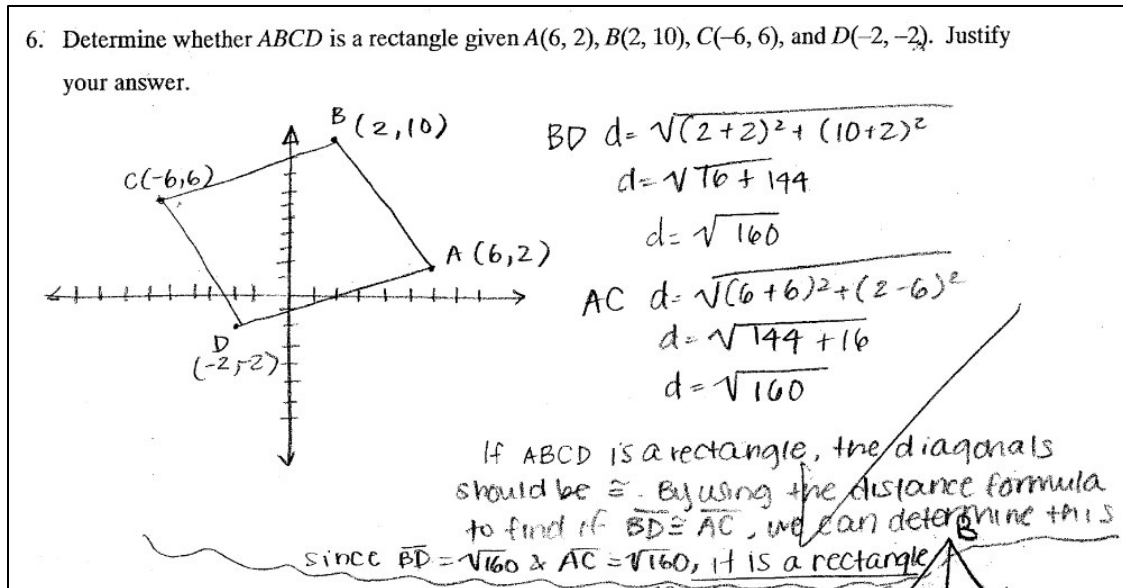 6. Determine whether ABCD is a rectangle given A(6, 2), B(2, 10), C(–6, 6), and D(–2, –2). Justify
your answer.
B (2,10)
C(-6,6)
A (6,2)
D
(-2,-2)
BD d= √(2+2)²+ (10+2)²
d= √16 + 144
d= √160
AC d= √(6+6)²+(2-6)²
d= √144 +16
d= √160
If ABCD is a rectangle, the diagonals
should be ≅. By using the distance formula
to find if BD≅ AC, we can determine this
since BD = √160 & AC = √160, it is a rectangle
B